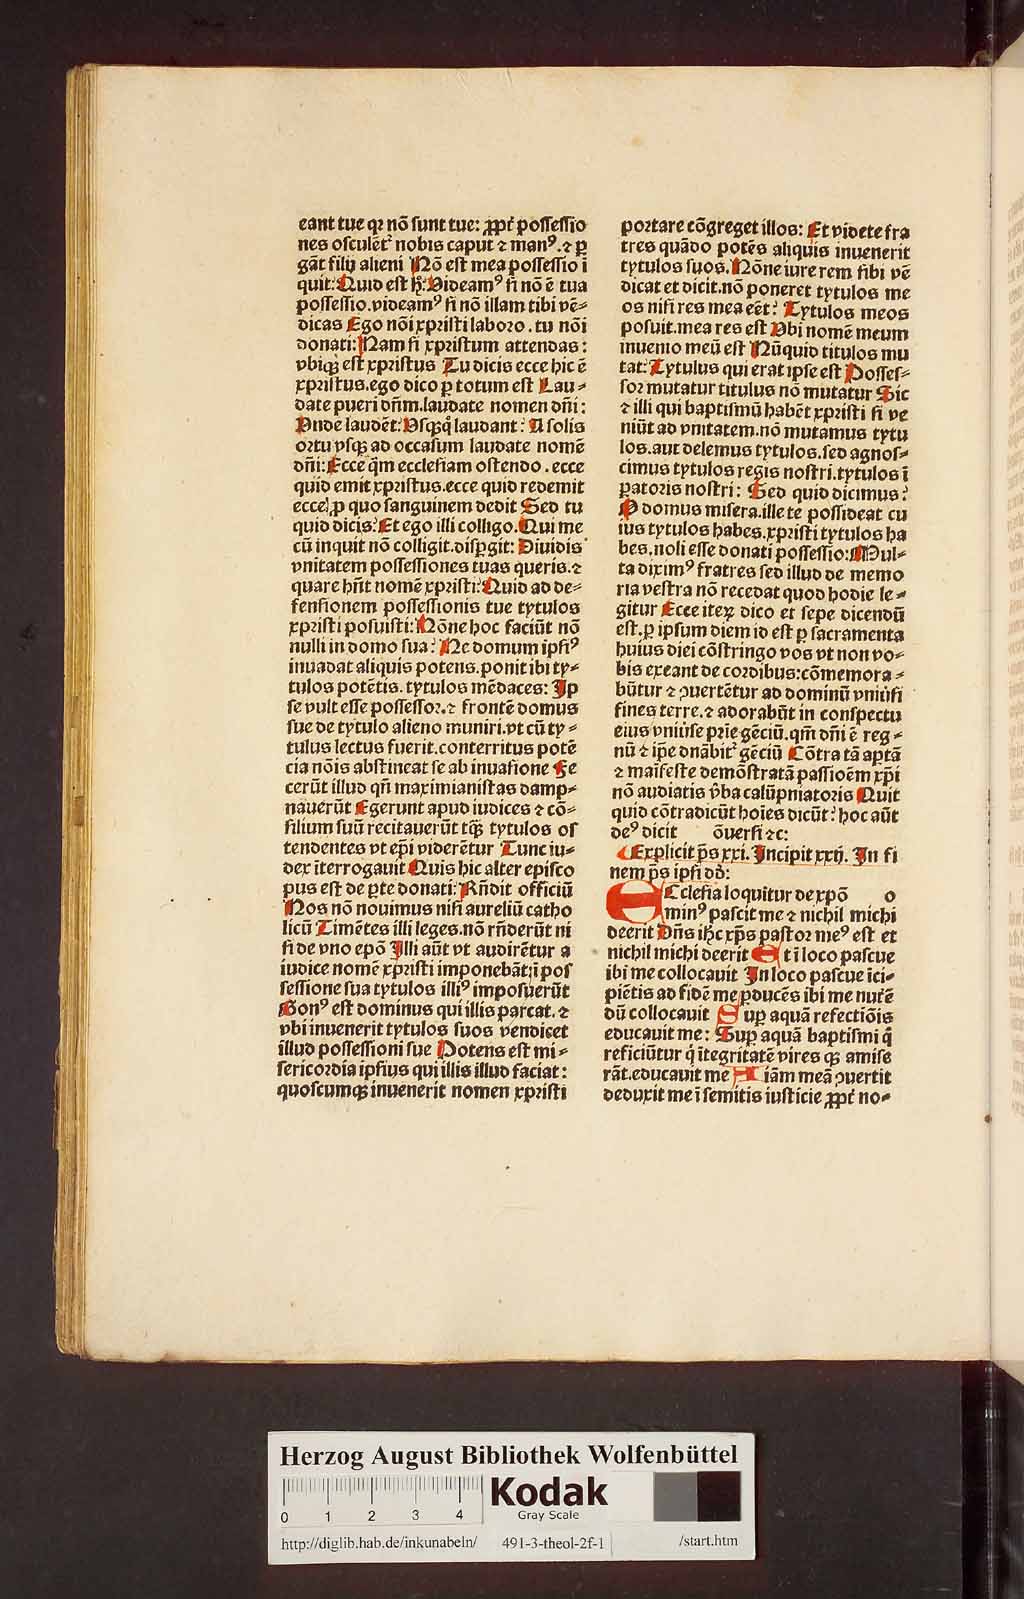 eant tue qꝛ nō sunt tue: ꝓpt̄ possessio
nes osculēt᷑ nobis caput ⁊ manꝰ.⁊ ꝑ
gāt filij alieni Nō est mea possessio ī
quit: Quid est h̄: Videamꝰ si nō ē tua
possessio.videamꝰ si nō illam tibi vē⸗
dicas Ego nōi xpristi laboro.tu nōi
donati: Nam si xpristum attendas:
vbiqꝫ est xpristus Tu dicis ecce hic ē
xpristus.ego dico ꝑ totum est Lau⸗
date pueri dn̄m.laudate nomen dn̄i:
Vnde laudēt: Vsqꝫq̄ laudant: A solis
ortu vsqꝫ ad occasum laudate nomē
dn̄i: Ecce q̄m ecclesiam ostendo.ecce
quid emit xpristus.ecce quid redemit
ecce ꝓ quo sanguinem dedit Sed tu
quid dicis: Et ego illi colligo. Qui me
cū inquit nō colligit.dispgit: Diuidis
vnitatem possessiones tuas queris.⁊
quare hn̄t nomē xpristi: Quid ad de⸗
fensionem possessionis tue tytulos
xpristi posuisti: Nōne hoc faciūt nō
nulli in domo sua: Ne domum ipsiꝰ
inuadat aliquis potens.ponit ibi ty⸗
tulos potētis.tytulos mēdaces: Ip
se vult esse possessor.⁊ frontē domus
sue de tytulo alieno muniri.vt cū ty⸗
tulus lectus fuerit.conterritus potē
cia nōis abstineat se ab inuasione Fe
cerūt illud qn̄ maximianistas damp⸗
nauerūt Egerunt apud iudices ⁊ cō⸗
silium suū recitauerūt tq̄ꝫ tytulos os
tendentes vt ep̄i viderētur Tunc iu⸗
dex īterrogauit Quis hic alter episco
pus est de ꝑte donati: Rn̄dit officiū
Nos nō nouimus nisi aureliū catho
licū Timētes illi leges.nō rn̄derūt ni
si de vno epō Illi aūt vt audirētur a
iudice nomē xpristi imponebāt:ī pos
sessione sua tytulos illiꝰ imposuerūt
Bonꝰ est dominus qui illis parcat.⁊
vbi inuenerit tytulos suos vendicet
illud possessioni sue Potens est mi⸗
sericordia ipsius qui illis illud faciat:
quoscumqꝫ inuenerit nomen xpristi
portare cōgreget illos: Et videte fra
tres quādo potēs aliquis inuenerit
tytulos suos. Nōne iure rem sibi vē
dicat et dicit.nō poneret tytulos me
os nisi res mea eēt: Tytulos meos
posuit.mea res est Vbi nomē meum
inuenio meū est Nūquid titulos mu
tat: Tytulus qui erat ipse est Posses⸗
sor mutatur titulus nō mutatur Sic
⁊ illi qui baptismū habēt xpristi si ve
niūt ad vnitatem.nō mutamus tytu
los.aut delemus tytulos.sed agnos⸗
cimus tytulos regis nostri.tytulos ī
ꝑatoris nostri: Sed quid dicimus:
O domus misera.ille te possideat cu
ius tytulos habes.xpristi tytulos ha
bes.noli esse donati possessio: Mul⸗
ta diximꝰ fratres sed illud de memo
ria vestra nō recedat quod hodie le⸗
gitur Ecce iteꝝ dico et sepe dicendū
est.ꝑ ipsum diem id est ꝑ sacramenta
huius diei cōstringo vos vt non vo⸗
bis exeant de cordibus:cōmemora⸗
būtur ⁊ ꝯuertētur ad dominū vniūsi
fines terre.⁊ adorabūt in conspectu
eius vniūse p̄rie gēciū.qm̄ dn̄i ē reg⸗
nū ⁊ ip̄e dn̄abit᷑ gēciū Cōtra tā aptā
⁊ māifeste demōstratā passioēm xp̄i
nō audiatis v̄ba calūpniatoris Quit
quid cōtradicūt hoīes dicūt: hoc aūt
deꝰ dicit ōuersi ⁊c:
Explicit p̄s xxi. Incipit xxij. In fi
nem p̄s ipsi dd̄:
ECclesia loquitur de xpō o
minꝰ pascit me ⁊ nichil michi
deerit Dn̄s ih̄c xp̄s pastor meꝰ est et
nichil michi deerit Et ī loco pascue
ibi me collocauit In loco pascue īci⸗
piētis ad fidē me ꝓducēs ibi me nut̄ē
dū collocauit Suꝑ aquā refectiōis
educauit me: Suꝑ aquā baptismi q̄
reficiūtur q̇ ītegritatē vires qꝫ amise
rāt.educauit me Aīam meā ꝯuertit
deduxit me ī semitis iusticie ꝓpt̄ no⸗
Herzog August Bibliothek Wolfenbüttel
0 1 2 3 4
Kodak
Gray Scale
http://diglib.hab.de/inkunabeln/ 491-3-theol-2f-1 /start.htm